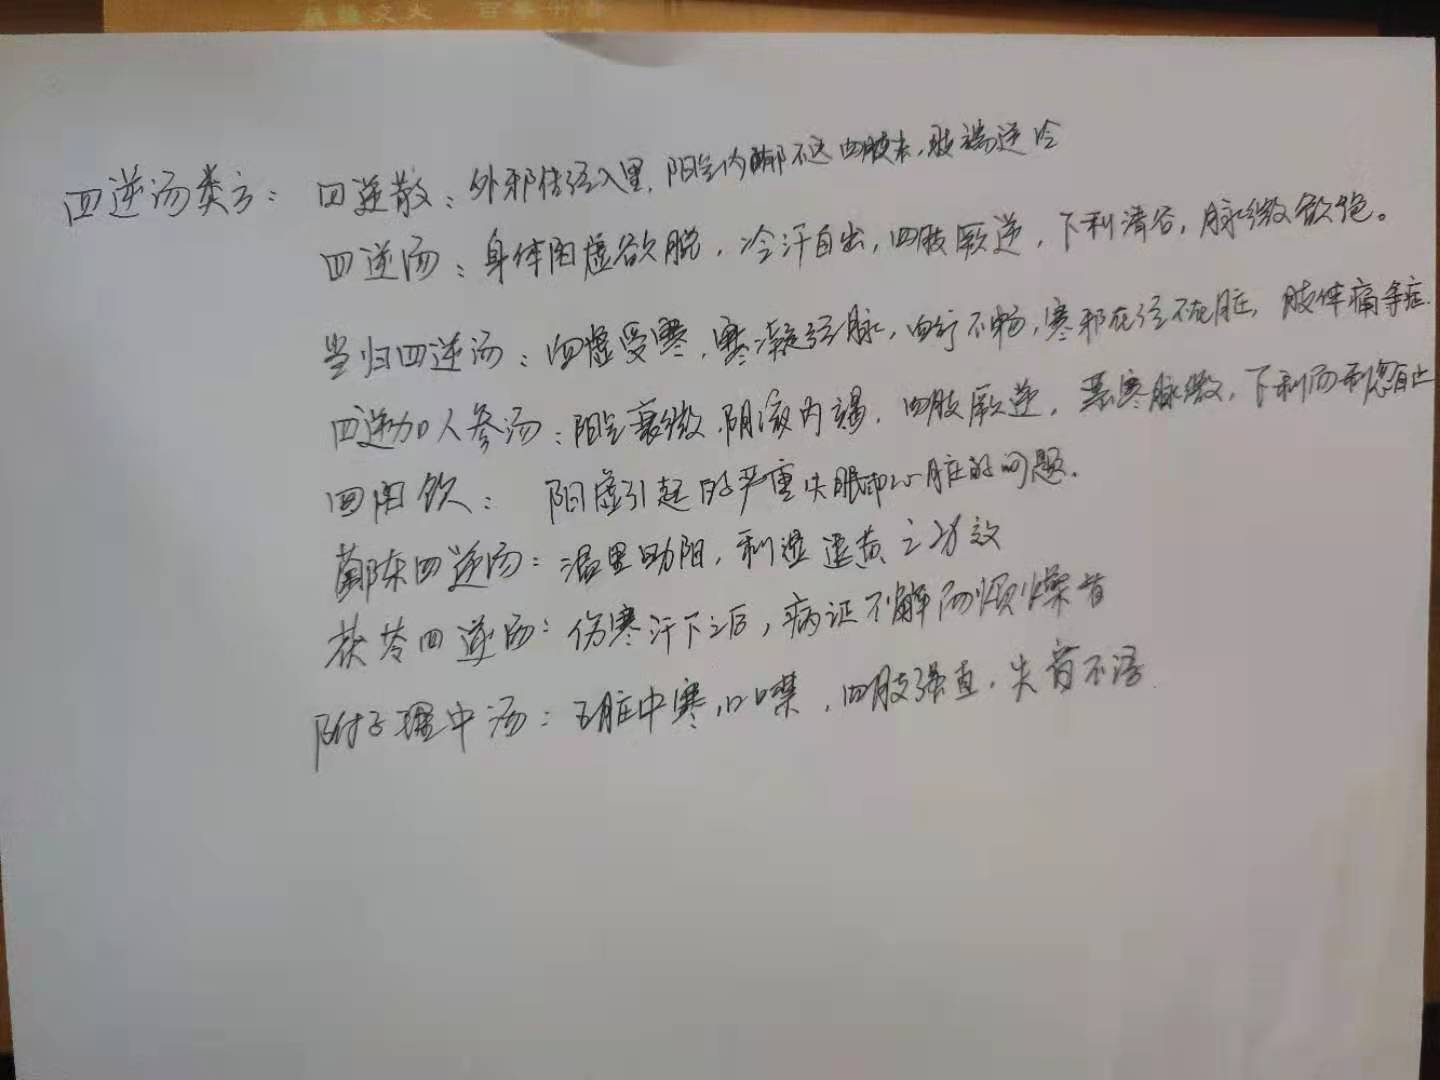 四逆汤类方：四逆散：外邪传经入里，阳气内郁不达四肢末，肢端逆冷
四逆汤：身体阳虚欲脱，冷汗自出，四肢厥逆，下利清谷，脉微欲绝。
当归四逆汤：血虚受寒，寒凝经脉，血行不畅，寒邪在经不在脏，肢体痛等症.
四逆加人参汤：阳气衰微，阴液内竭，四肢厥逆，恶寒脉微，下利而利忽自止
回阳饮：阳虚引起的严重失眠即心脏的问题.
茵陈四逆汤：温里助阳，利湿退黄之功效
茯苓四逆汤：伤寒汗下之后，病证不解而烦燥者
附子理中汤：五脏中寒，口噤，四肢强直，失音不语